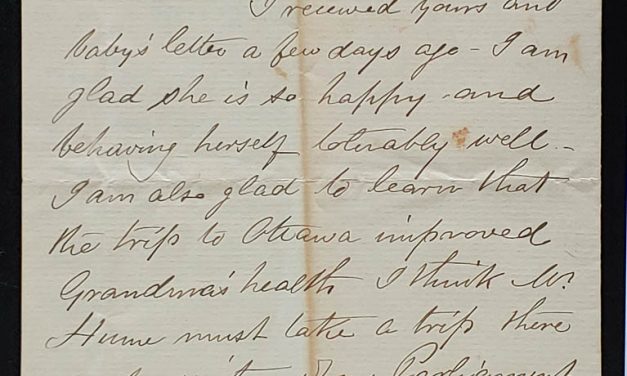 I received yours and
baby's letter a few days ago - I am
glad she is so happy - and
behaving herself tolerably well. -
I am also glad to learn that
the trip to Ottawa improved
Grandma's health I think Mr.
Hume must take a trip there
Parliament